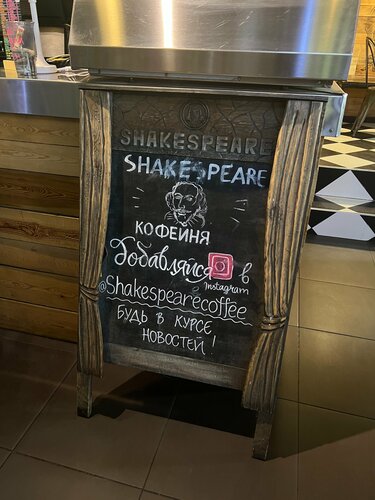 SHAKESPEARE
SHAKESPEARE
КОФЕЙНЯ
Добавляйся в
Instagram
@Shakespearecoffee
БУДЬ В КУРСЕ
НОВОСТЕЙ!